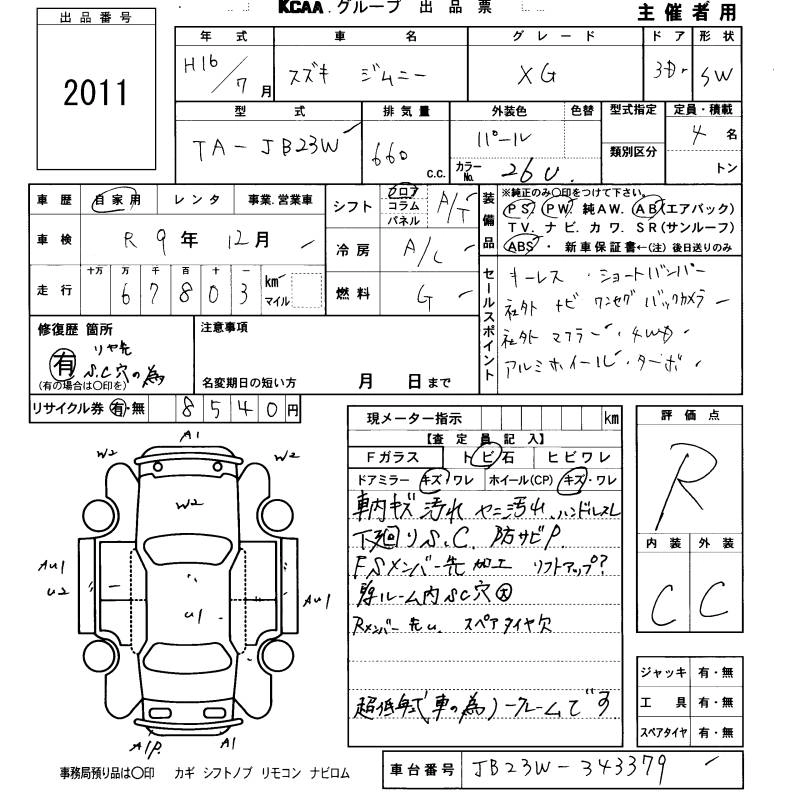 出品番号
2011
KCAA.グループ 出品票
主催者用
年式 車名 グレード ドア 形状
H16/7月 スズキ ジムニー XG 3Dr SW
型式 排気量 外装色 色替 型式指定 定員・積載
TA-JB23W 660 c.c. パール カラーNo. 26U. 類別区分 4名 トン
車歴 自家用 レンタ 事業.営業車
車検 R9年12月
走行 十万 万 千 百 十 一
67803 km マイル
シフト フロア コラム パネル A/T
冷房 A/C
燃料 G
装備品
※純正のみ○印をつけて下さい。
PS. PW. 純AW. AB(エアバック)
TV. ナビ. カワ. SR(サンルーフ)
ABS ・ 新車保証書←(注) 後日送りのみ
セールスポイント
キーレス ・ショートバンパー
社外 ナビ ワンセグ バックカメラ
社外 マフラー・4WD
アルミホイール・ターボ・
修復歴 箇所
リヤ先
有
S.C穴の為
(有の場合は○印を)
注意事項
名変期日の短い方 月 日まで
リサイクル券 有・無 8540円
現メーター指示 km
【査定員記入】
Fガラス トビ石 ヒビワレ
ドアミラー キズ・ワレ ホイール(CP) キズ・ワレ
車内キズ 汚れ ヤニ汚れ ハンドルスレ
下廻りS.C. 防サビP.
FSメンバー先 加工 リフトアップ?
ルーム内SC穴大
Rメンバー先u. スペアタイヤ欠
超低年式車の為ノークレームです
評価点
R
内装 外装
C C
ジャッキ 有・無
工具 有・無
スペアタイヤ 有・無
A1
W2 W2
W2
AU1
U2
U1
AU1
A1P. A1
事務局預り品は○印 カギ シフトノブ リモコン ナビロム
車台番号 JB23W-343379